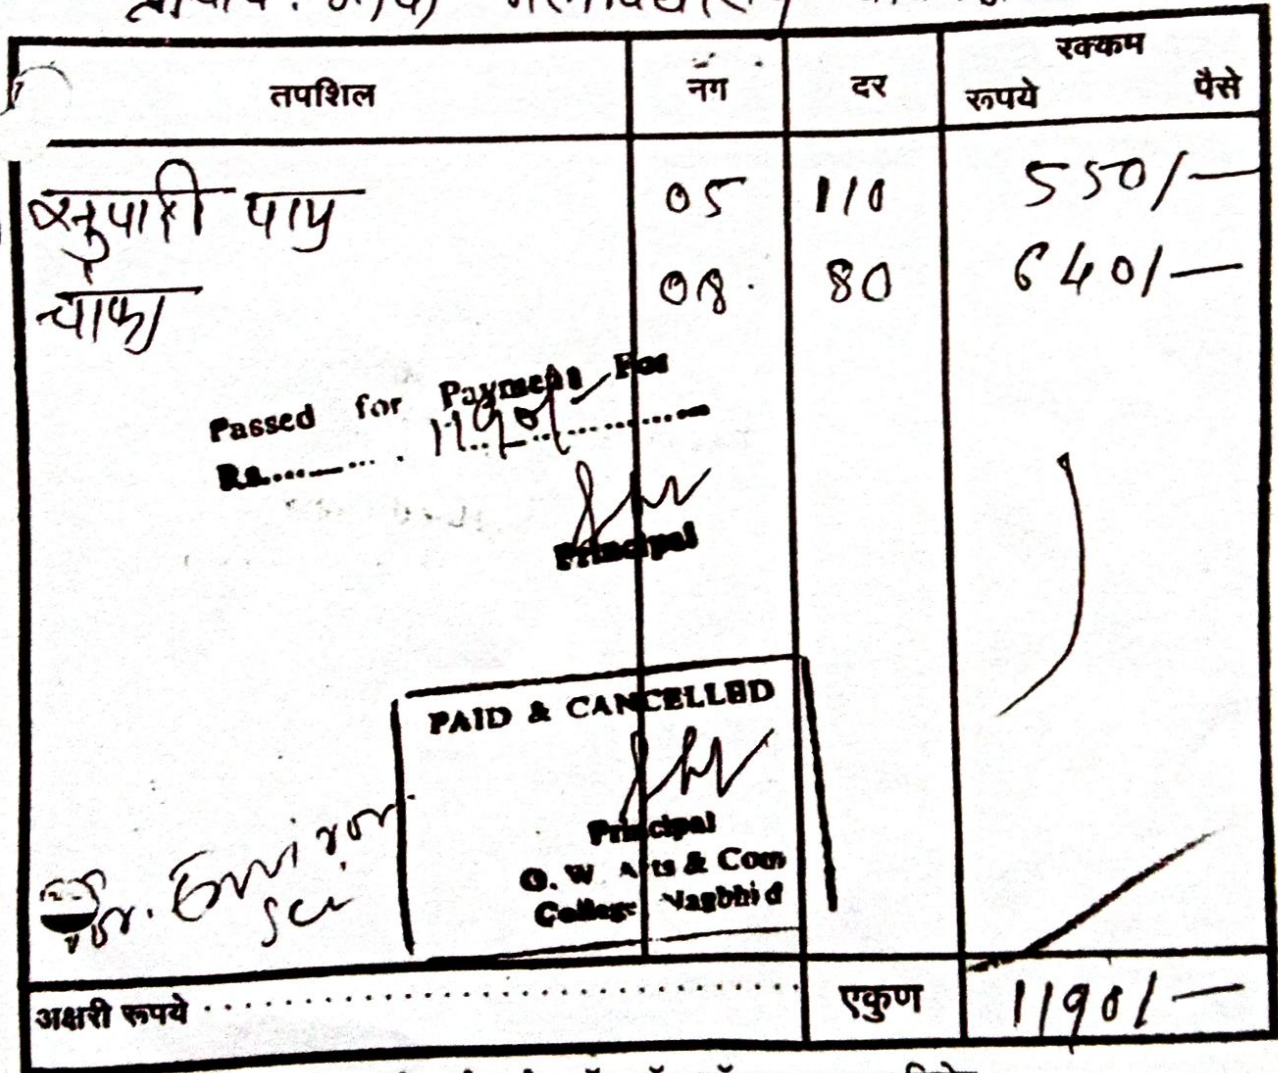 रक्कम
तपशिल नग दर रूपये पैसे
सुपारी पाम 05 110 550/-
चाफा 08 80 640/-
Passed for Payment For
Rs. 1190/-
Principal
PAID & CANCELLED
Principal
G. W Arts & Com
College Nagbhid
for. Environ
Sci
अक्षरी रूपये एकुण 1190/-